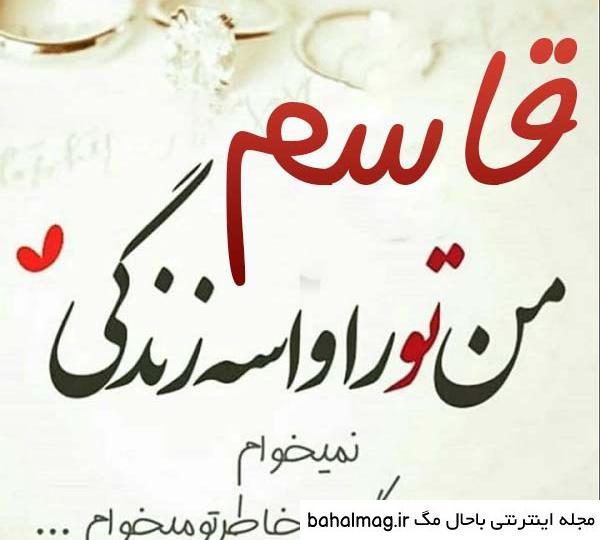 قاسم
من تو را واسه زندگی
نمیخوام
خاطر تو میخوام ...
مجله اینترنتی باحال مگ bahalmag.ir